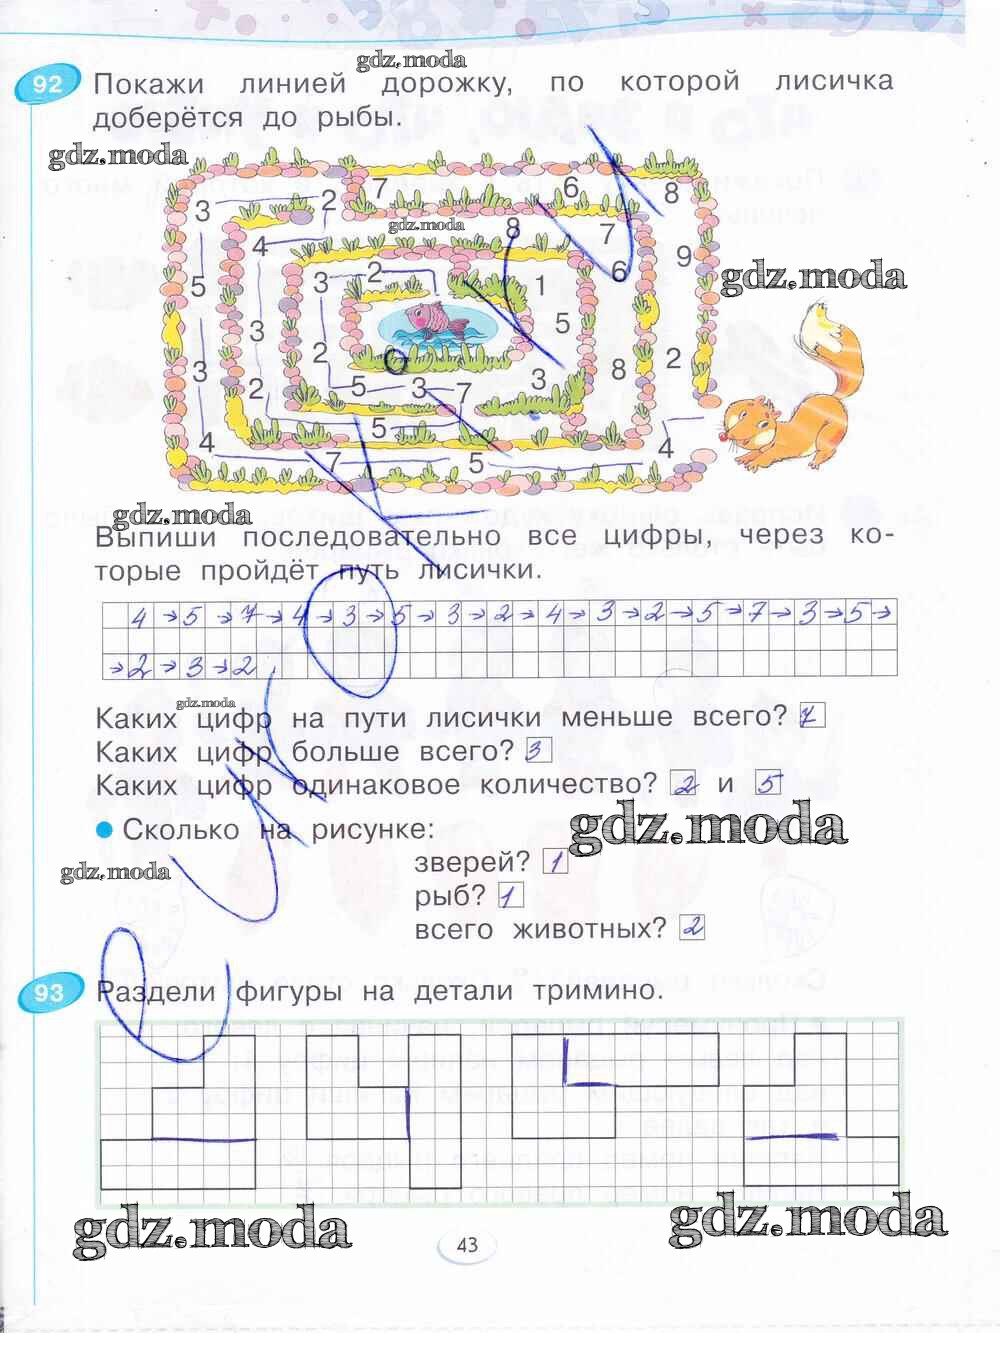 gdz.moda
92 Покажи линией дорожку, по которой лисичка
доберётся до рыбы.
gdz.moda
3 2 7 6 8
gdz.moda
4 8 7
5 3 2 1 6 9
gdz.moda
3 5
3 2 2 5 3 7 3 8 2
4 5
7 5 4
gdz.moda
Выпиши последовательно все цифры, через ко-
торые пройдёт путь лисички.
4→5→7→4→3→5→3→2→4→3→2→5→7→3→5→
→2→3→2
gdz.moda
Каких цифр на пути лисички меньше всего? 7
Каких цифр больше всего? 3
Каких цифр одинаковое количество? 2 и 5
gdz.moda
Сколько на рисунке:
зверей? 1
gdz.moda
рыб? 1
всего животных? 2
93 Раздели фигуры на детали тримино.
gdz.moda
gdz.moda
43